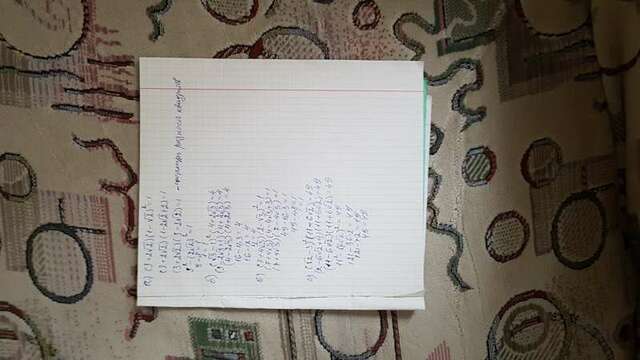 а) (3+2√2)(1-√2)²=1
(3+2√2)(1-2√2+2)=1
(3+2√2)(3-2√2)=1 - формулы разности квадратов
3²-(2√2)²=1
9-8=1
1=1
б) (√3-1)²(4+2√3)=4
(3-2√3+1)(4+2√3)=4
(4-2√3)(4+2√3)=4
16-4·3=4
16-12=4
4=4
в) (7+4√3)(2-√3)²=1
(7+4√3)(4-4√3+3)=1
(7+4√3)(7-4√3)=1
49-16·3=1
49-48=1
1=1
г) (√2-3)²(11+6√2)=49
(11+6√2)=49
(11-6√2)(11+6√2)=49
11²-(6√2)²=49
121-36·2=49
121-72=49
49=49